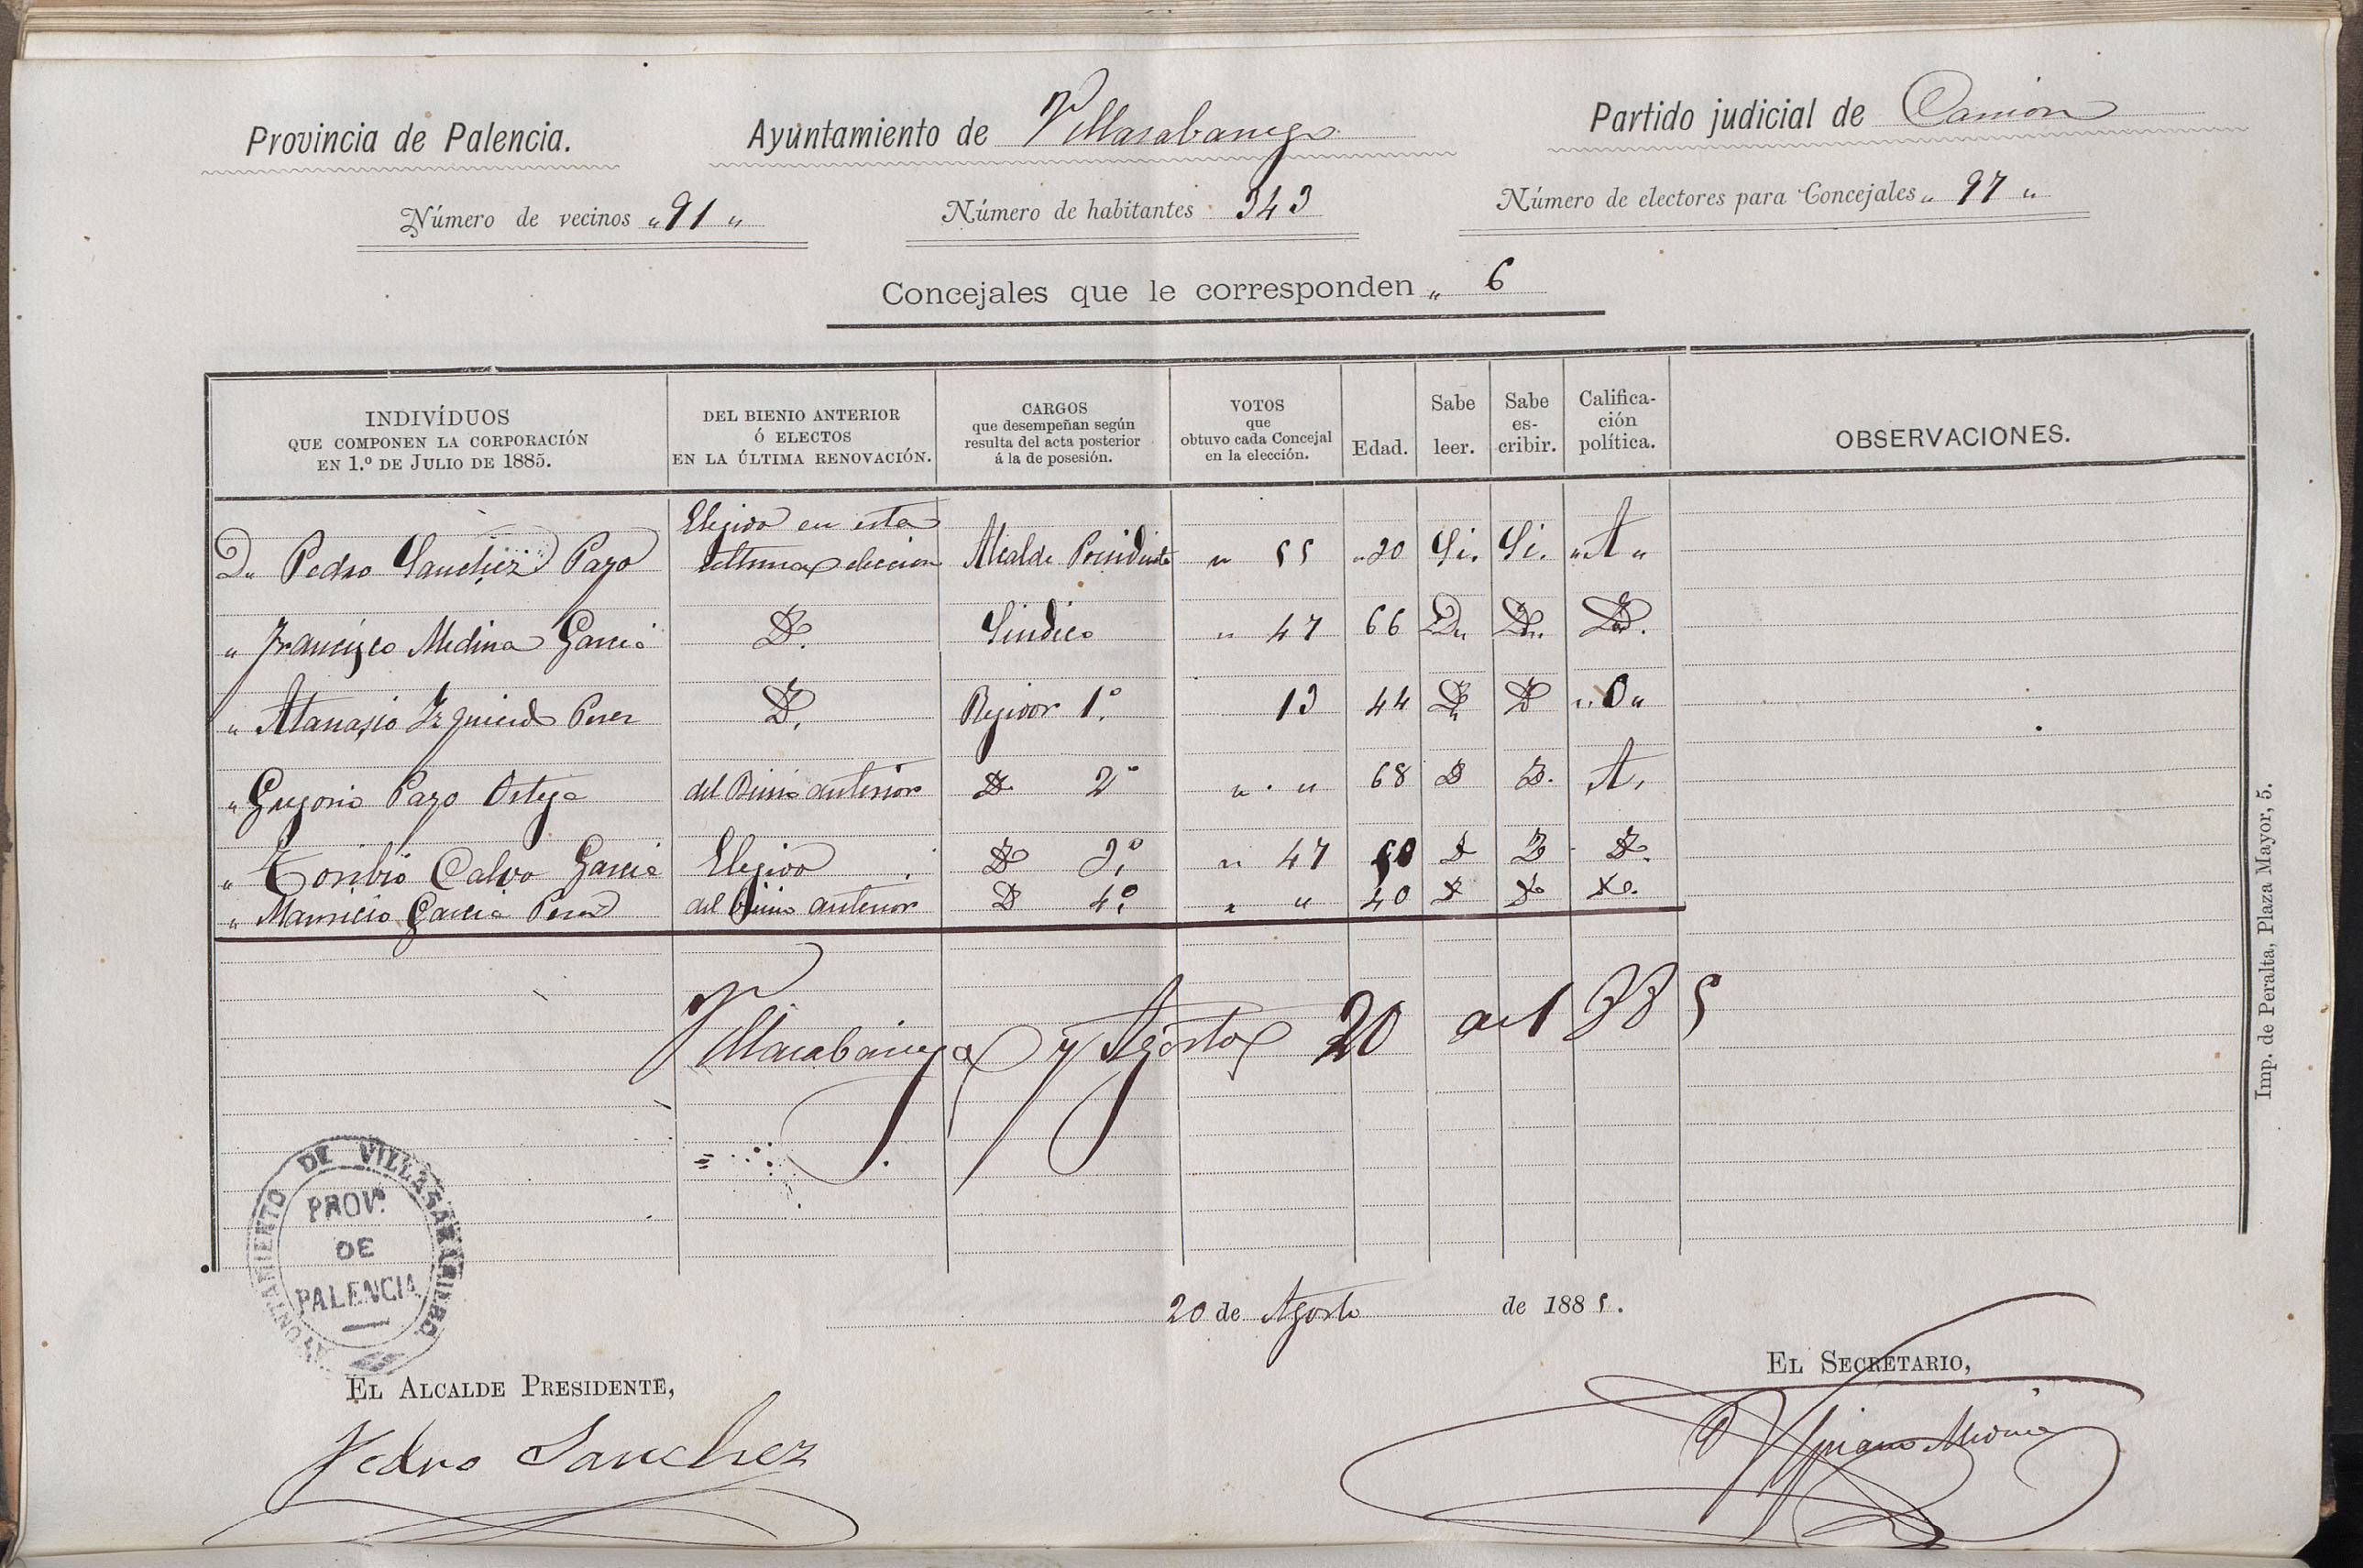 Provincia de Palencia. Ayuntamiento de Villasabariego Partido judicial de Carrion
Número de vecinos " 91 " Número de habitantes 343 Número de electores para Concejales " 97 "
Concejales que le corresponden " 6
INDIVÍDUOS QUE COMPONEN LA CORPORACIÓN EN 1.º DE JULIO DE 1885. DEL BIENIO ANTERIOR Ó ELECTOS EN LA ÚLTIMA RENOVACIÓN. CARGOS que desempeñan según resulta del acta posterior á la de posesión. VOTOS que obtuvo cada Concejal en la elección. Edad. Sabe leer. Sabe es-cribir. Califica-ción política. OBSERVACIONES.
Elegido en esta
Dn Pedro Sanchez Pazo ultima eleccion Alcalde Presidente " 55 " 20 Si. Si. " A "
" Francisco Medina Garcia D. Sindico " 47 66 D. D. D.
" Atanasio Izquierdo Perez D. Regidor 1.º 13 44 D. D " O "
" Gregorio Pazo Ortega del Bienio anterior D. 2º " . " 68 D D. A.
" Toribio Calvo Garcia Elegido D 3.º " 47 50 D D D.
" Mauricio Garcia Perez del Bienio anterior D 4.º " " 40 D D. D.
Villasabariego y Agosto 20 de 1885
AYUNTAMIENTO DE VILLASABARIEGO
PROV.
DE
PALENCIA
20 de Agosto de 1885.
EL ALCALDE PRESIDENTE, EL SECRETARIO,
Pedro Sanchez Medina
Imp. de Peralta, Plaza Mayor, 5.